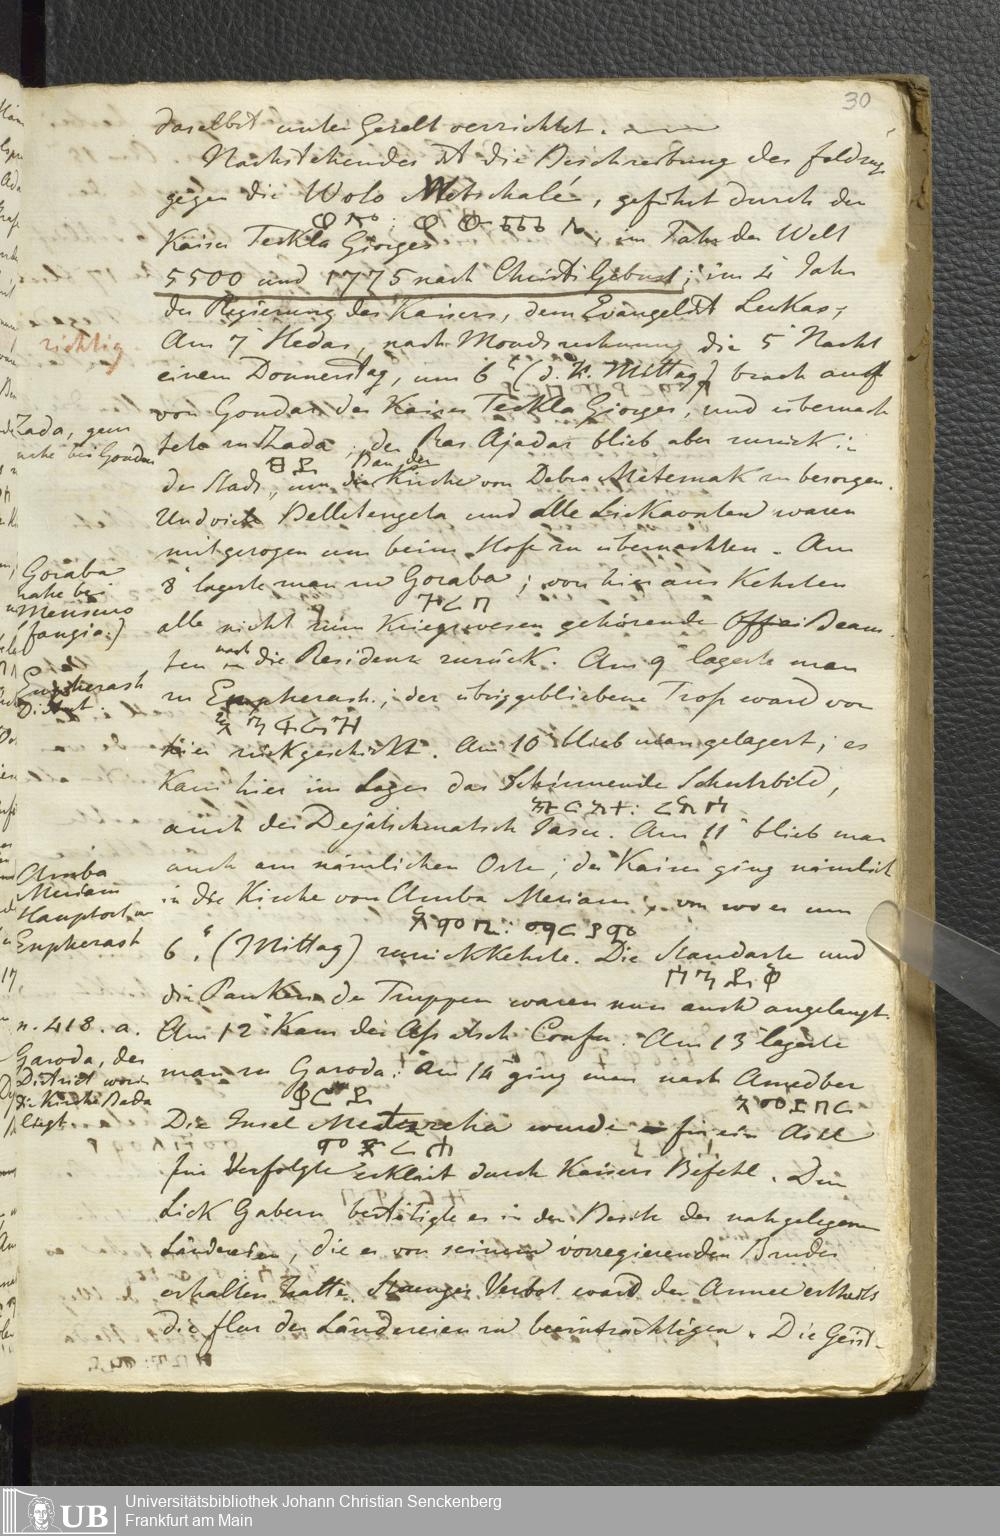 30
daselbst unter Gezelt verrichtet.
Nachstehendes ist die Beschreibung des Feldzug
gegen die Wolo Metschalé, geführt durch den
Kaiser Teckla Giorges, im Jahr der Welt
5500 und 1775 nach Christi Geburt; im 4 Jahr
der Regierung des Kaisers, dem Evangelist Luckas;
richtig
Am 7 Hedar, nach Mondsrechnung die 5 Nacht
einem Donnerstag, um 6 (d. h. Mittag) brach auf
von Gondar der Kaiser Teckla Giorges, und übernach
tete zu Zada; der Ras Ajadar blieb aber zurück in
Zada, ganz
nahe bei Gondar
der Stadt, um den Bau der Kirche von Debra Metemak zu besorgen.
Und Belletengeta und alle Lickaonten waren
mitgezogen um beim Hofe zu übernachten. Am
8 lagerte man zu Goraba; von hier aus kehrten
ጎራባ
Goraba
nahe bei
Mensino
(fangia:)
alle nicht zum Kriegswesen gehörende Beam
ten nach die Residenz zurück. Am 9 lagerte man
zu Enpherash; der übriggebliebene Tross ward von
Enpherash
District.
hier rückgeschickt. Am 10 blieb man gelagert; es
kam hier im Lager das Schirmende Schutzbild,
auch der Dejatschmatsch Jasu. Am 11 blieb man
auch am nämlichen Orte; der Kaiser ging nämlich
in die Kirche von Amba Meriam, von wo er um
አምባ፡ ማርያም
Amba
Meriam
Hauptort in
Enpherash
6. (Mittag) zurückkehrte. Die Standarte und
ሰንደቅ
die Pauken der Truppen waren nun auch angelangt.
n. 418. a.
Am 12 kam der Confu. Am 13 lagerte
man zu Garoda: Am 14 ging man nach Amedber
ቃሮዳ
አምድበር
Garoda, der
District worin
die Kirche Bada
liegt.
Die Insel Metzreha wurde für ein Asil
ምጽራሐ
für Verfolgte erklärt durch Kaisers Befehl. Den
Lick Gaberu bestätigte er in den Besitz der nahgelegenen
Ländereien, die er von seinem vorregierenden Bruder
erhalten hatte. Strenges Verbot ward der Armee ertheilt
die Flur der Ländereien zu beeinträchtigen. Die Geist-
UB
Universitätsbibliothek Johann Christian Senckenberg
Frankfurt am Main